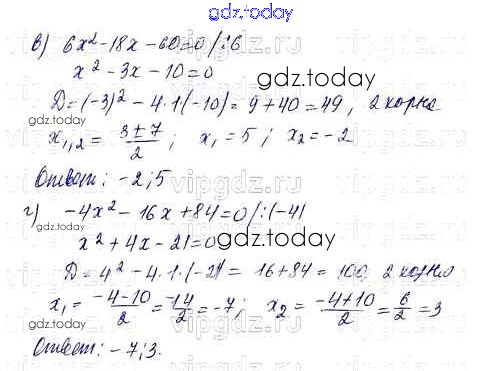 gdz.today
в) 6x² - 18x - 60 = 0 /:6
x² - 3x - 10 = 0
gdz.today
D = (-3)² - 4·1(-10) = 9 + 40 = 49, 2 корня
x₁,₂ = (3±7)/2; x₁ = 5; x₂ = -2
Ответ: -2; 5
vipgdz.ru
г) -4x² - 16x + 84 = 0 /:(-4)
gdz.today
x² + 4x - 21 = 0
gdz.today
D = 4² - 4·1·(-21) = 16 + 84 = 100, 2 корня
x₁ = (-4-10)/2 = -14/2 = -7; x₂ = (-4+10)/2 = 6/2 = 3
gdz.today
gdz.today
Ответ: -7; 3.